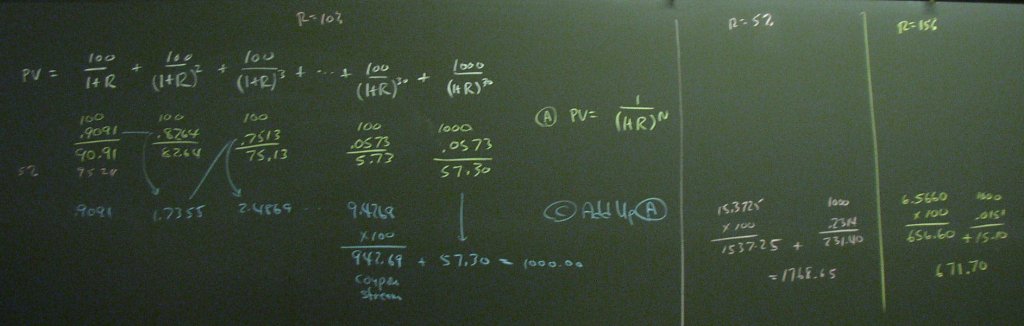 R=10%
PV = 100/1+R + 100/(1+R)² + 100/(1+R)³ + ... + 100/(1+R)³⁰ + 1000/(1+R)³⁰
100 100 100 100 1000
.9091 .8264 .7513 .0573 .0573
90.91 82.64 75.13 5.73 57.30
5%
.9091 1.7355 2.4869 ... 9.4269
x100
942.69 + 57.30 = 1000.00
coupon
stream
(A) PV = 1/(1+R)ᴺ
(C) Add Up (A)
R=5%
15.3725 1000
x100 .2314
1537.25 + 231.40
=1768.65
R=15%
6.5660 1000
x100 .0151
656.60 + 15.10
671.70